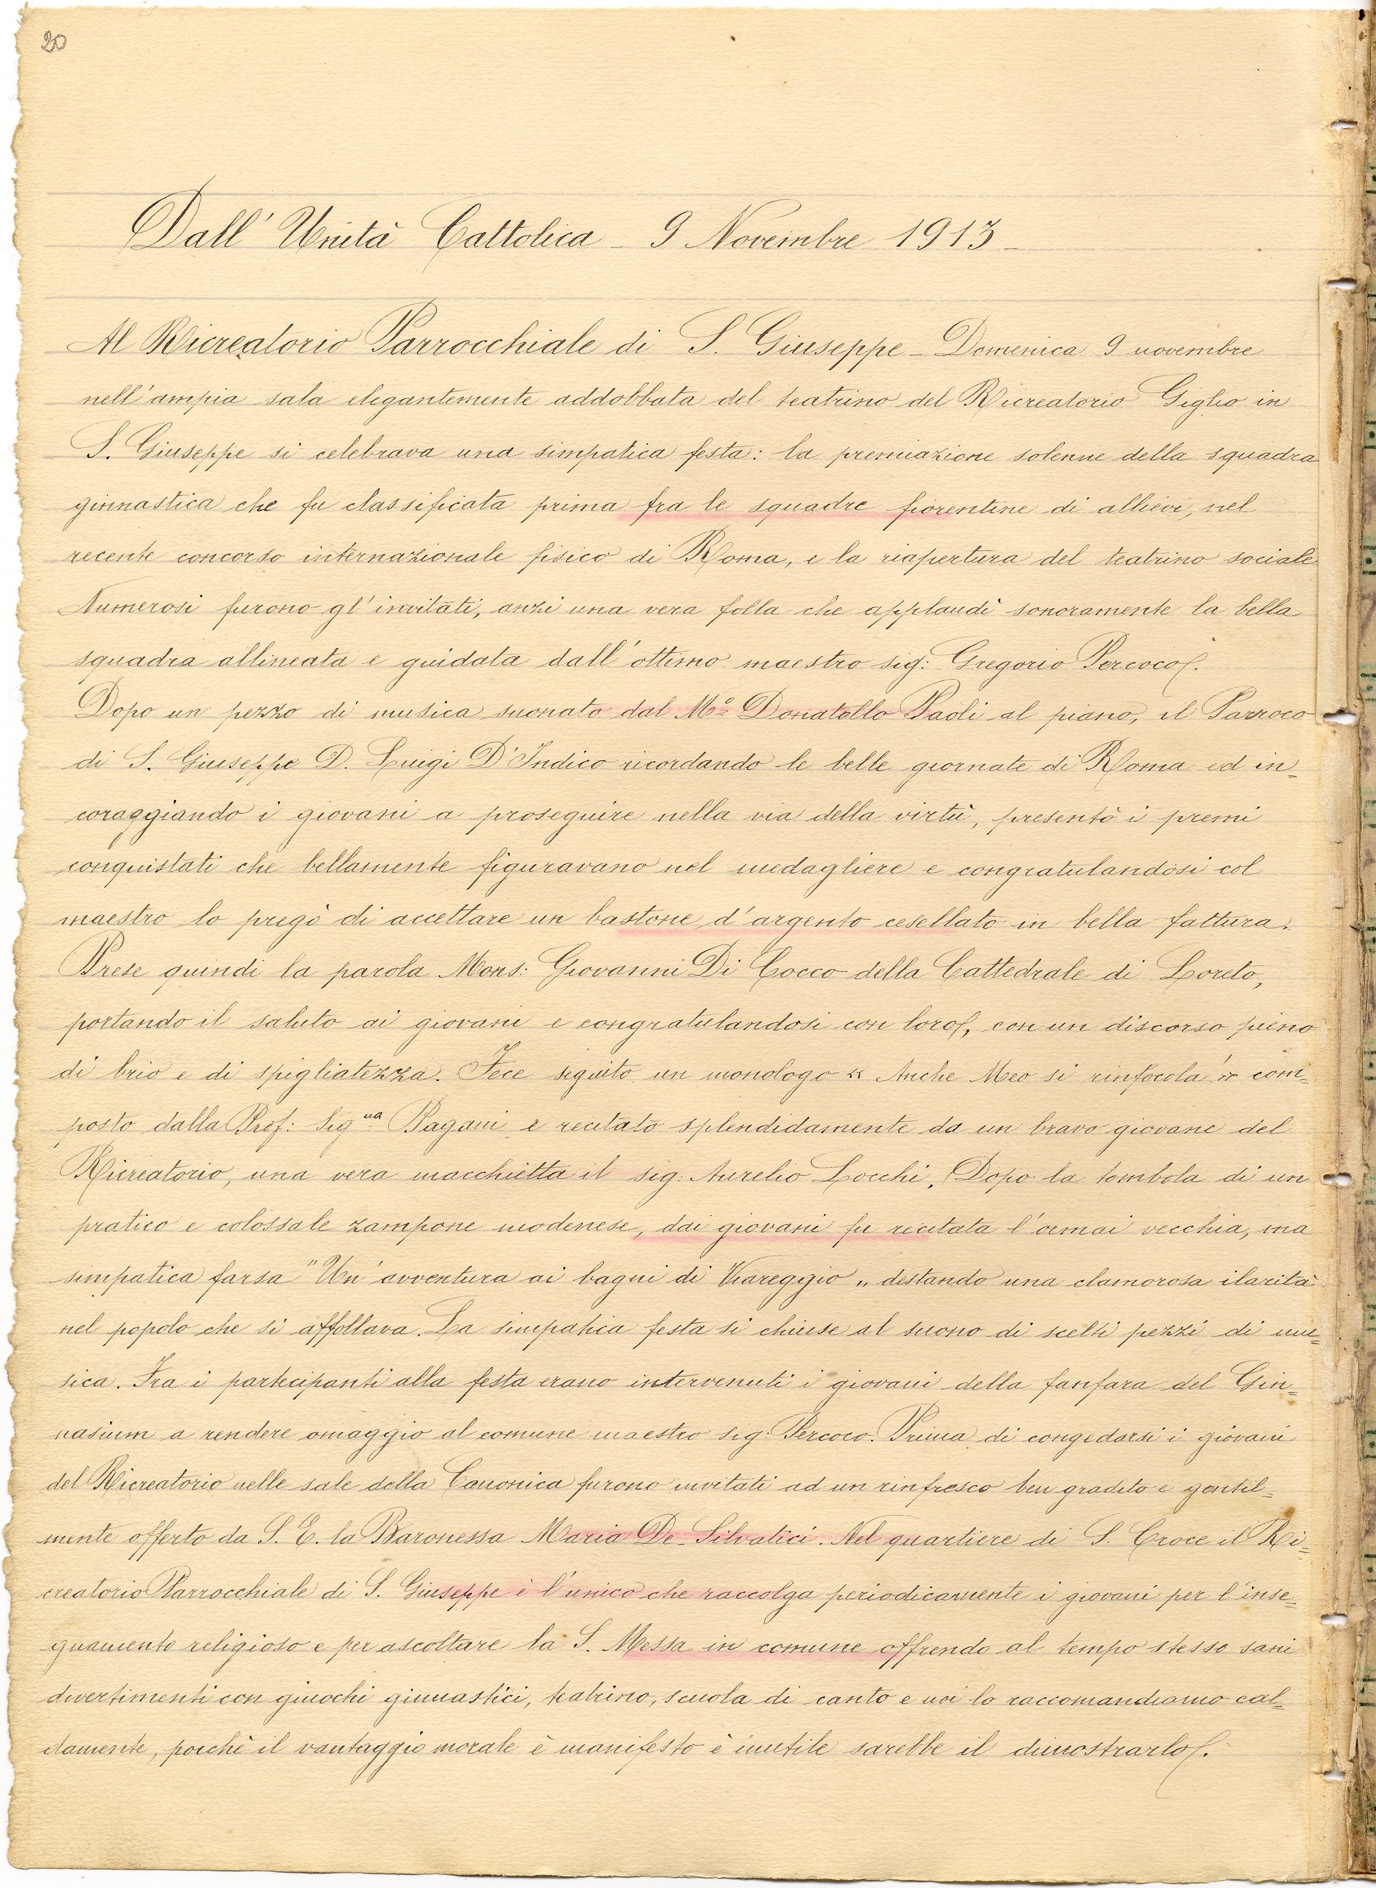 20
Dall' Unità Cattolica - 9 Novembre 1913 -
Al Ricreatorio Parrocchiale di S. Giuseppe - Domenica 9 novembre
nell'ampia sala elegantemente addobbata del teatrino del Ricreatorio Giglio in
S. Giuseppe si celebrava una simpatica festa: la premiazione solenne della squadra
ginnastica che fu classificata prima fra le squadre fiorentine di allievi, nel
recente concorso internazionale fisico di Roma, e la riapertura del teatrino sociale
Numerosi furono gl'invitati, anzi una vera folla che applaudì sonoramente la bella
squadra allineata e guidata dall'ottimo maestro sig: Gregorio Percoco.
Dopo un pezzo di musica suonato dal Mº Donatello Paoli al piano, il Parroco
di S. Giuseppe D. Luigi D'Indico ricordando le belle giornate di Roma ed in=
coraggiando i giovani a proseguire nella via della virtù, presentò i premi
conquistati che bellamente figuravano nel medagliere e congratulandosi col
maestro lo pregò di accettare un bastone d'argento cesellato in bella fattura.
Prese quindi la parola Mons: Giovanni Di Cocco della Cattedrale di Loreto,
portando il saluto ai giovani e congratulandosi con loro, con un discorso pieno
di brio e di spigliatezza. Fece seguito un monologo « Anche Meo si rinfocola » com=
posto dalla Prof: Sigua Pagani e recitato splendidamente da un bravo giovane del
Ricreatorio, una vera macchietta il sig: Aurelio Locchi. Dopo la tombola di un
pratico e colossale zampone modenese, dai giovani fu recitata l'ormai vecchia, ma
simpatica farsa "Un'avventura ai bagni di Viareggio„ destando una clamorosa ilarità
nel popolo che si affollava. La simpatica festa si chiuse al suono di scelti pezzi di mu=
sica. Fra i partecipanti alla festa erano intervenuti i giovani della fanfara del Gin=
nasium a rendere omaggio al comune maestro sig: Percoco. Prima di congedarsi i giovani
del Ricreatorio nelle sale della Canonica furono invitati ad un rinfresco ben gradito e gentil=
mente offerto da S. E. la Baronessa Maria De-Silvatici. Nel quartiere di S. Croce il Ri=
creatorio Parrocchiale di S. Giuseppe è l'unico che raccolga periodicamente i giovani per l'inse=
gnamento religioso e per ascoltare la S. Messa in comune offrendo al tempo stesso sani
divertimenti con giuochi ginnastici, teatrino, scuola di canto e noi lo raccomandiamo cal=
damente, poichè il vantaggio morale è manifesto è inutile sarebbe il dimostrarlo.